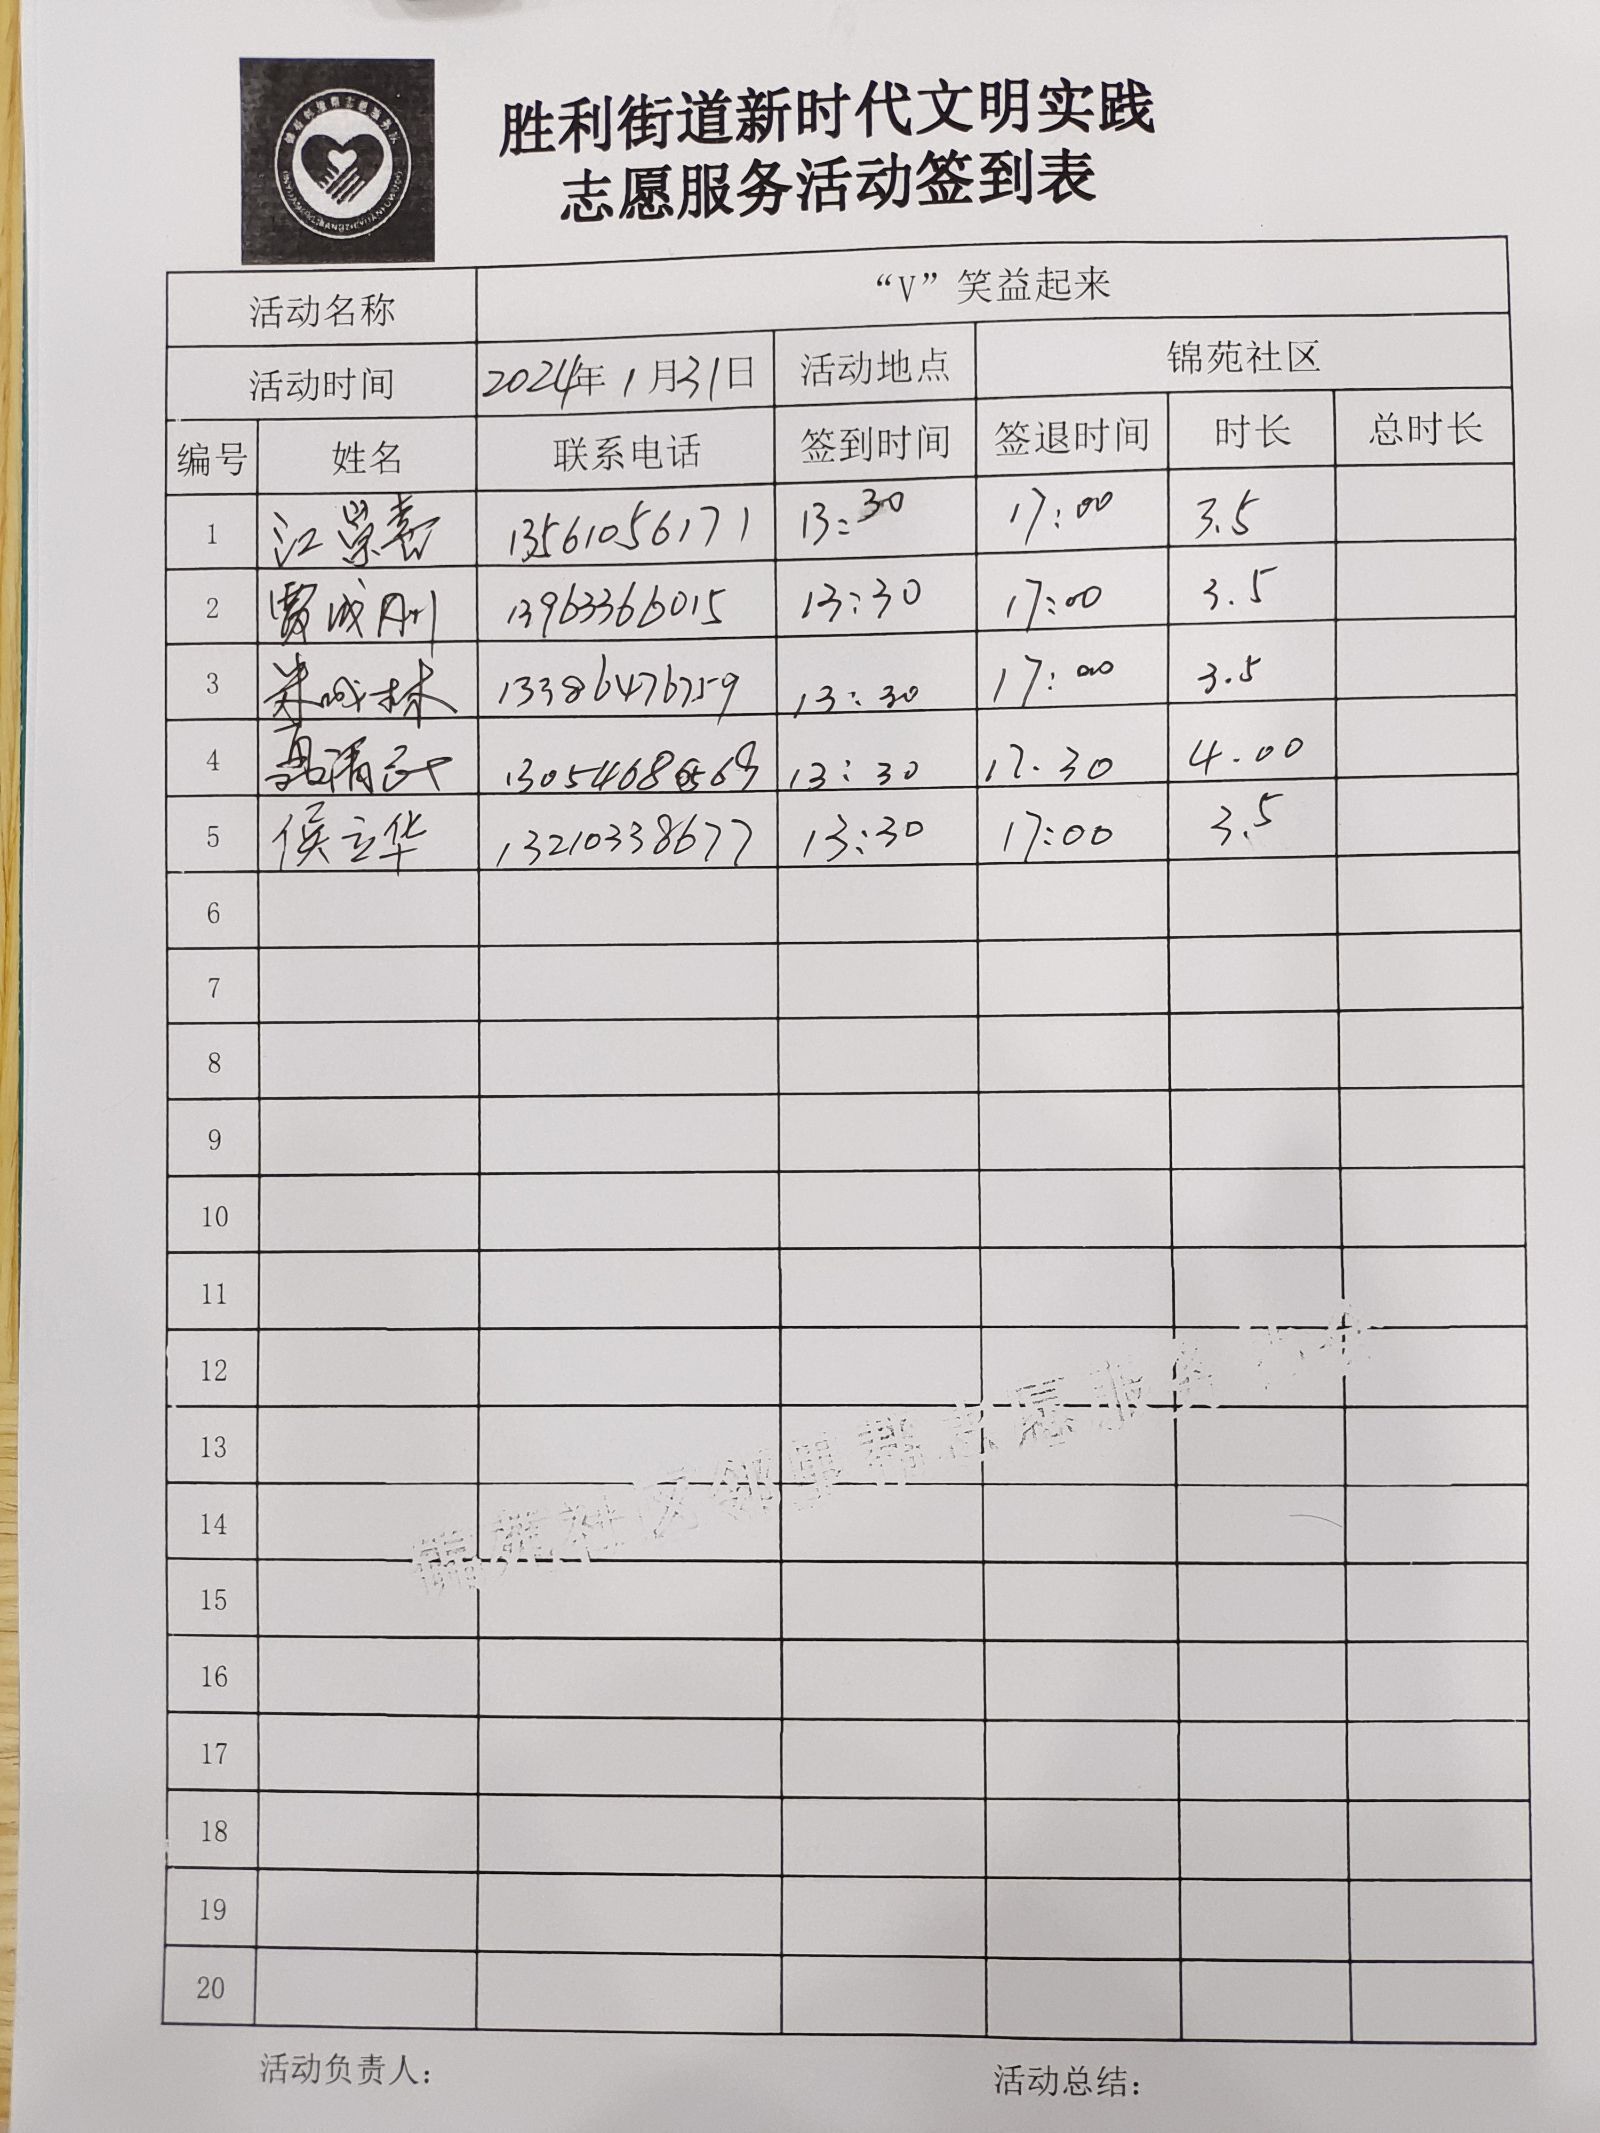 胜利街道新时代文明实践
志愿服务活动签到表
活动名称 “V”笑益起来
活动时间 2024年1月31日 活动地点 锦苑社区
编号 姓名 联系电话 签到时间 签退时间 时长 总时长
1 江崇喜 13561056171 13:30 17:00 3.5
2 贾成刚 13963366015 13:30 17:00 3.5
3 13386476759 13:30 17:00 3.5
4 13:30 17.30 4.00
5 侯立华 13210338677 13:30 17:00 3.5
6
7
8
9
10
11
12
13
14
15
16
17
18
19
20
锦苑社区邻里帮志愿服务
活动负责人：
活动总结：